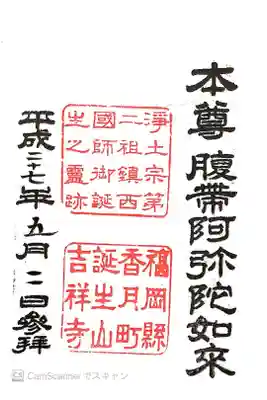 本尊 腹帯阿弥陀如来
淨土宗第
二祖鎮西
國師御誕
生之靈跡
福岡縣
香月町
誕生山
吉祥寺
平成二十七年五月二日参拝
CS CamScanner でスキャン